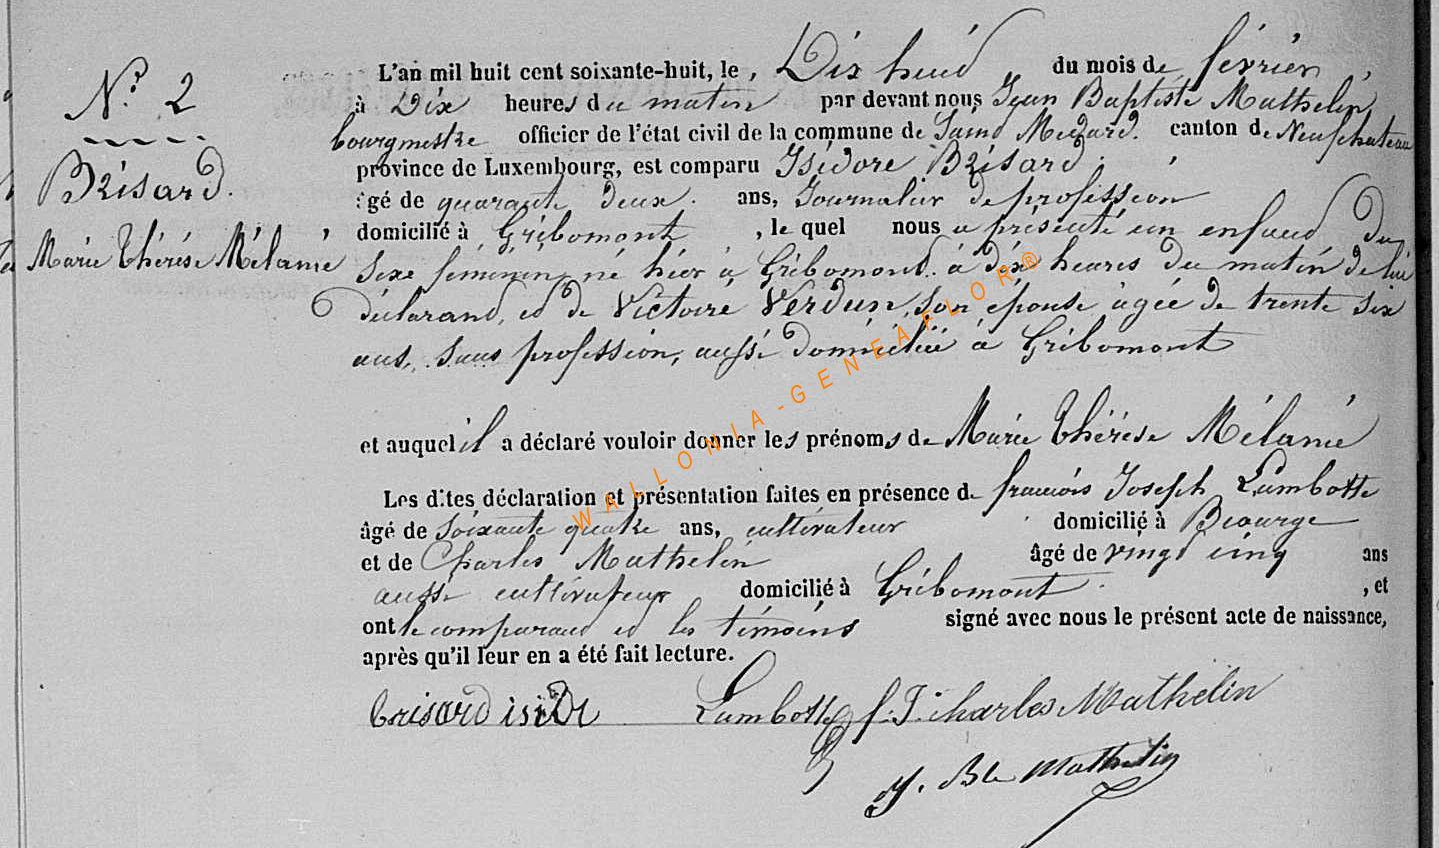 N.° 2
Brisard.
Marie Thérèse Mélanie
L'an mil huit cent soixante-huit, le Dix huid du mois de février,
à Dix heures du matin par devant nous Jean Baptiste Mathelin,
bourgmestre officier de l'état civil de la commune de Saind Médard. canton de Neufchateau
province de Luxembourg, est comparu Isidore Brisard
âgé de quarante deux. ans, Journalier de profession
domicilié à Gribomont, le quel nous a présenté un enfand du
sexe féminin, né hier à Gribomond. à dix heures du matin de lui
déclarand, ed de Victoire Verdun, son épouse âgée de trente six
ans, sans profession, aussi domiciliée à Gribomont
et auquel il a déclaré vouloir donner les prénoms de Marie Thérèse Mélanie
Les dites déclaration et présentation faites en présence de françois Joseph Lambotte
âgé de soixante quatre ans, cultivateur domicilié à Biourge
et de Charles Mathelin âgé de vingt cinq ans
aussi cultivateur domicilié à Gribomont, et
ont le comparand ed les témoins signé avec nous le présent acte de naissance,
après qu'il leur en a été fait lecture.
brisard isidor Lambotte f. J. charles Mathelin
J. Bte Mathelin
WALLONIA-GENEAFLOR®